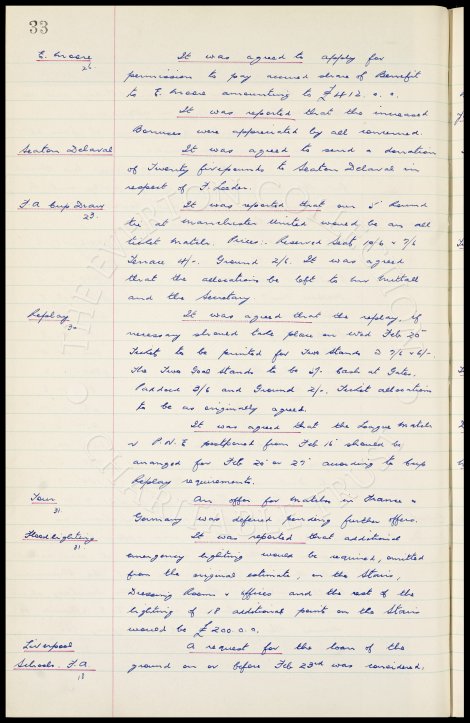 33
E. Moore
26
It was agreed to apply for
permission to pay accrued share of Benefit
to E. Moore amounting to £412. 0. 0.
It was reported that the increased
Bonuses were appreciated by all concerned.
Seaton Delaval
It was agreed to send a donation
of Twenty five pounds to Seaton Delaval in
respect of F. Leeder.
F.A. Cup Draw
23.
It was reported that our 5 Round
tie at Manchester United would be an all
ticket match. Prices:- Reserved Seats 10/6 & 7/6
Terrace 4/-. Ground 2/6. It was agreed
that the allocations be left to Mr Nuttall
and the Secretary
Replay
30
It was agreed that the replay, if
necessary should take place on Wed Feb 25
Tickets to be printed for Two Stands @ 7/6 & 6/-.
The Two Goal Stands to be 5/- Cash at Gates.
Paddock 3/6 and Ground 2/-. Ticket allocation
to be as originally agreed.
It was agreed that the League match
v P.N.E postponed from Feb 16 should be
arranged for Feb 20 or 27 according to Cup
Replay requirements.
Tour
31
An offer for matches in France &
Germany was deferred pending further offers.
Floodlighting
31
It was reported that additional
emergency lighting would be required, omitted
from the original estimate, on the Stairs,
Dressing Rooms & offices and the cost of the
lighting of 18 additional points on the Stairs
would be £200. 0. 0.
Liverpool
Schools. F.A.
18
A request for the loan of the
ground on or before Feb 23rd was considered.
THE EVERTON COLLECTION
CHARITABLE TRUST